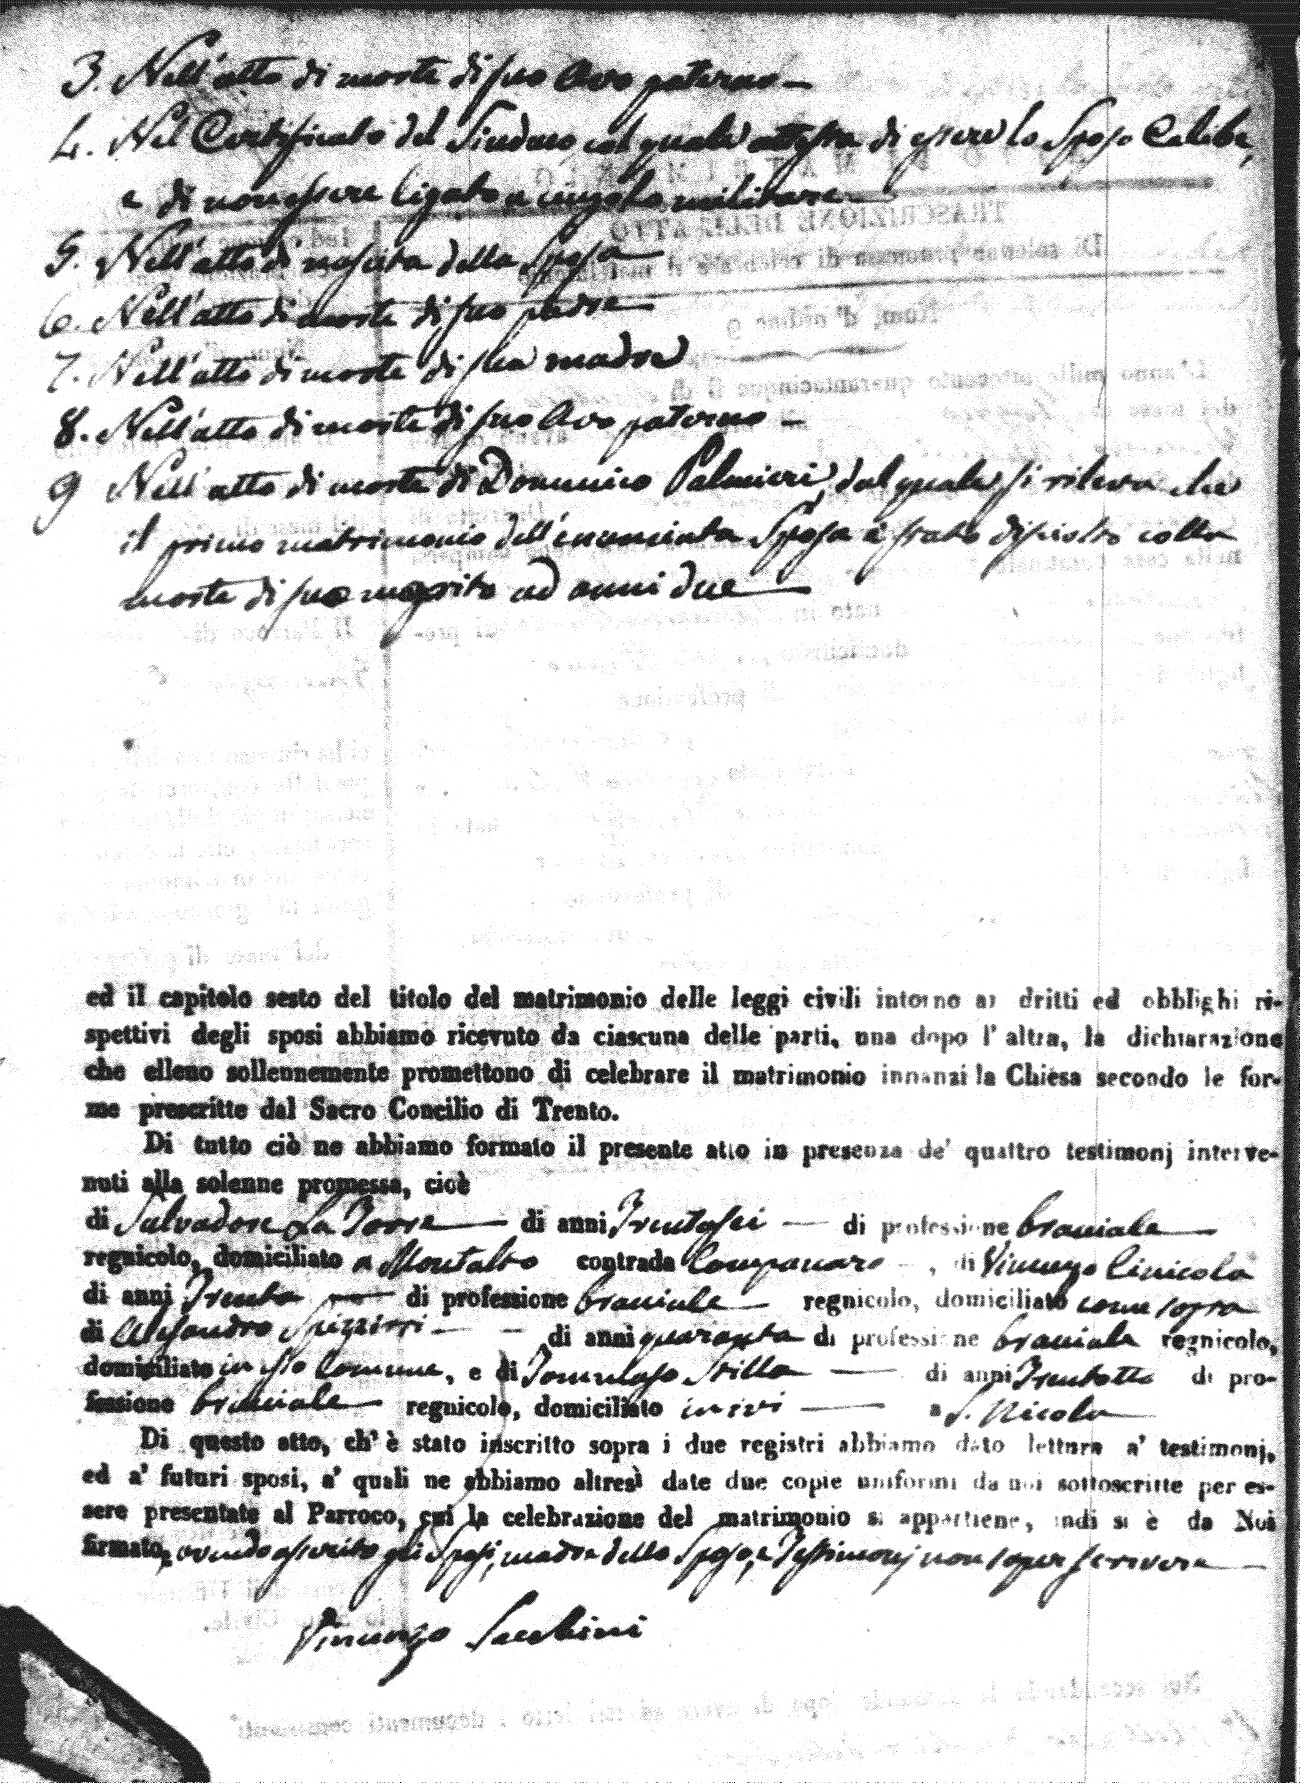 3. Nell'atto di morte di suo Avo paterno —
4. Nel Certificato del Sindaco col quale attesta di essere lo Sposo Celibe,
e di non essere ligato a militare —
5. Nell'atto di nascita della Sposa —
6. Nell'atto di morte di suo padre —
7. Nell'atto di morte di sua madre
8. Nell'atto di morte di suo Avo paterno —
9 Nell'atto di morte di Domenico Palmieri, dal quale si rileva che
il primo matrimonio dell'enunciata Sposa è stato disciolto colla
morte di suo marito ad anni due —
ed il capitolo sesto del titolo del matrimonio delle leggi civili intorno ai dritti ed obblighi ri-
spettivi degli sposi abbiamo ricevuto da ciascuna delle parti, una dopo l' altra, la dichiarazione
che elleno sollennemente promettono di celebrare il matrimonio innanzi la Chiesa secondo le for-
me prescritte dal Sacro Concilio di Trento.
Di tutto ciò ne abbiamo formato il presente atto in presenza de' quattro testimonj interve-
nuti alla solenne promessa, cioè
di Salvadore La Torre — di anni Trentasei — di professione braciale —
regnicolo, domiciliato a Montalto contrada Companaro — , di Vincenzo Linicola
di anni Trenta — di professione braciale — regnicolo, domiciliato come sopra
di Alesandro Spizzirri — — di anni quaranta di professione braciale regnicolo,
domiciliato in sto Comune, e di Tommaso Stilla — di anni Trentotto di pro-
fessione braciale — regnicolo, domiciliato in ivi — a S. Nicola —
Di questo atto, ch' è stato inscritto sopra i due registri abbiamo dato lettura a' testimonj,
ed a' futuri sposi, a' quali ne abbiamo altresì date due copie uniformi da noi sottoscritte per es-
sere presentate al Parroco, cui la celebrazione del matrimonio si appartiene, indi si è da Noi
firmato, avendo asserito gli Sposi, madre dello Sposo, e Testimonj non saper scrivere —
Vincenzo Sacchini